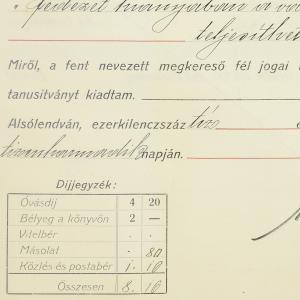 fedezet hiányában a vá
teljesíthe
Miről, a fent nevezett megkereső fél jogai
tanusitványt kiadtam.
Alsólendván, ezerkilenczszáz tíz
tizenharmadik napján.
Díjjegyzék:
Óvásdíj 4 20
Bélyeg a könyvön 2 —
Vitelbér . .
Másolat . 80
Közlés és postabér 1. 10
Összesen 8. 10